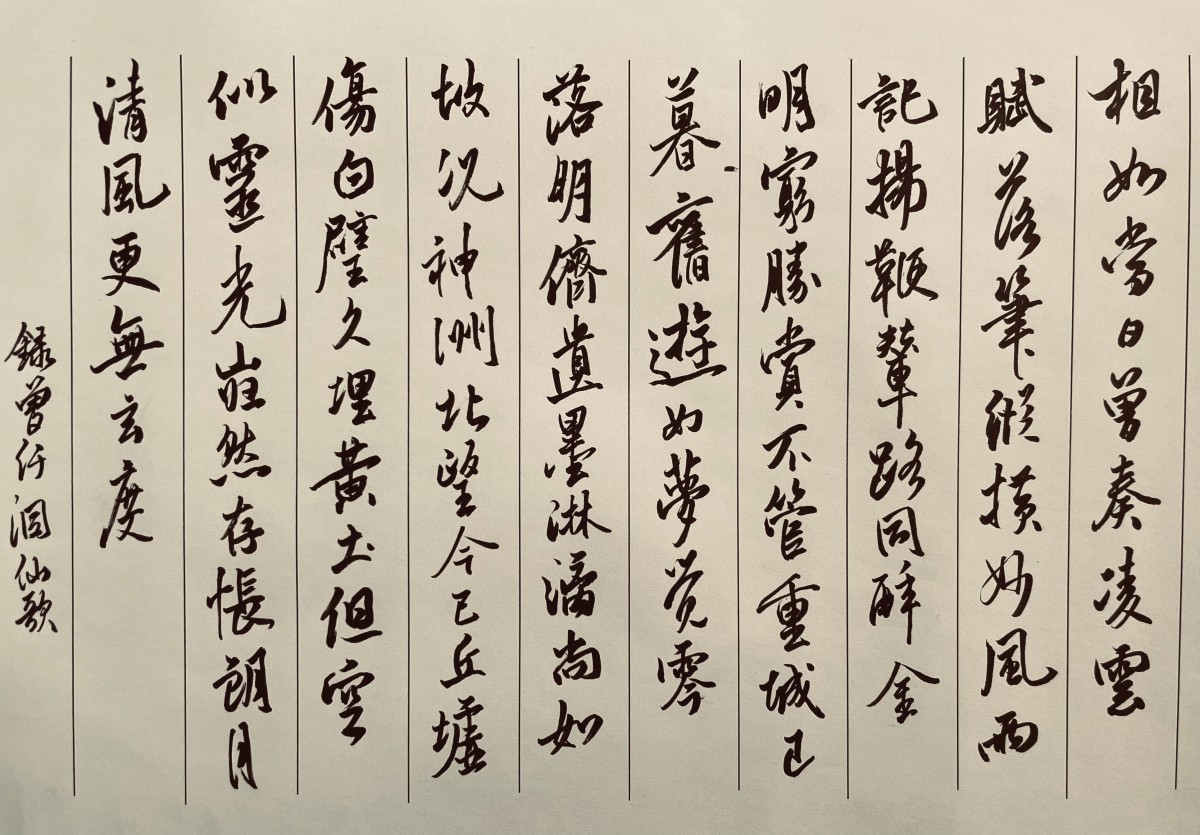 相如當日曾奏凌雲
賦落筆縱橫妙風雨
記揚鞭輦路同醉金
明窮勝賞不管重城已
暮舊遊如夢覺零
落朋儕遺墨淋漓尚如
故況神洲北望今已丘墟
傷白璧久埋黃土但空
似靈光巋然存悵朗月
清風更無玄度
錄曾仟洞仙歌